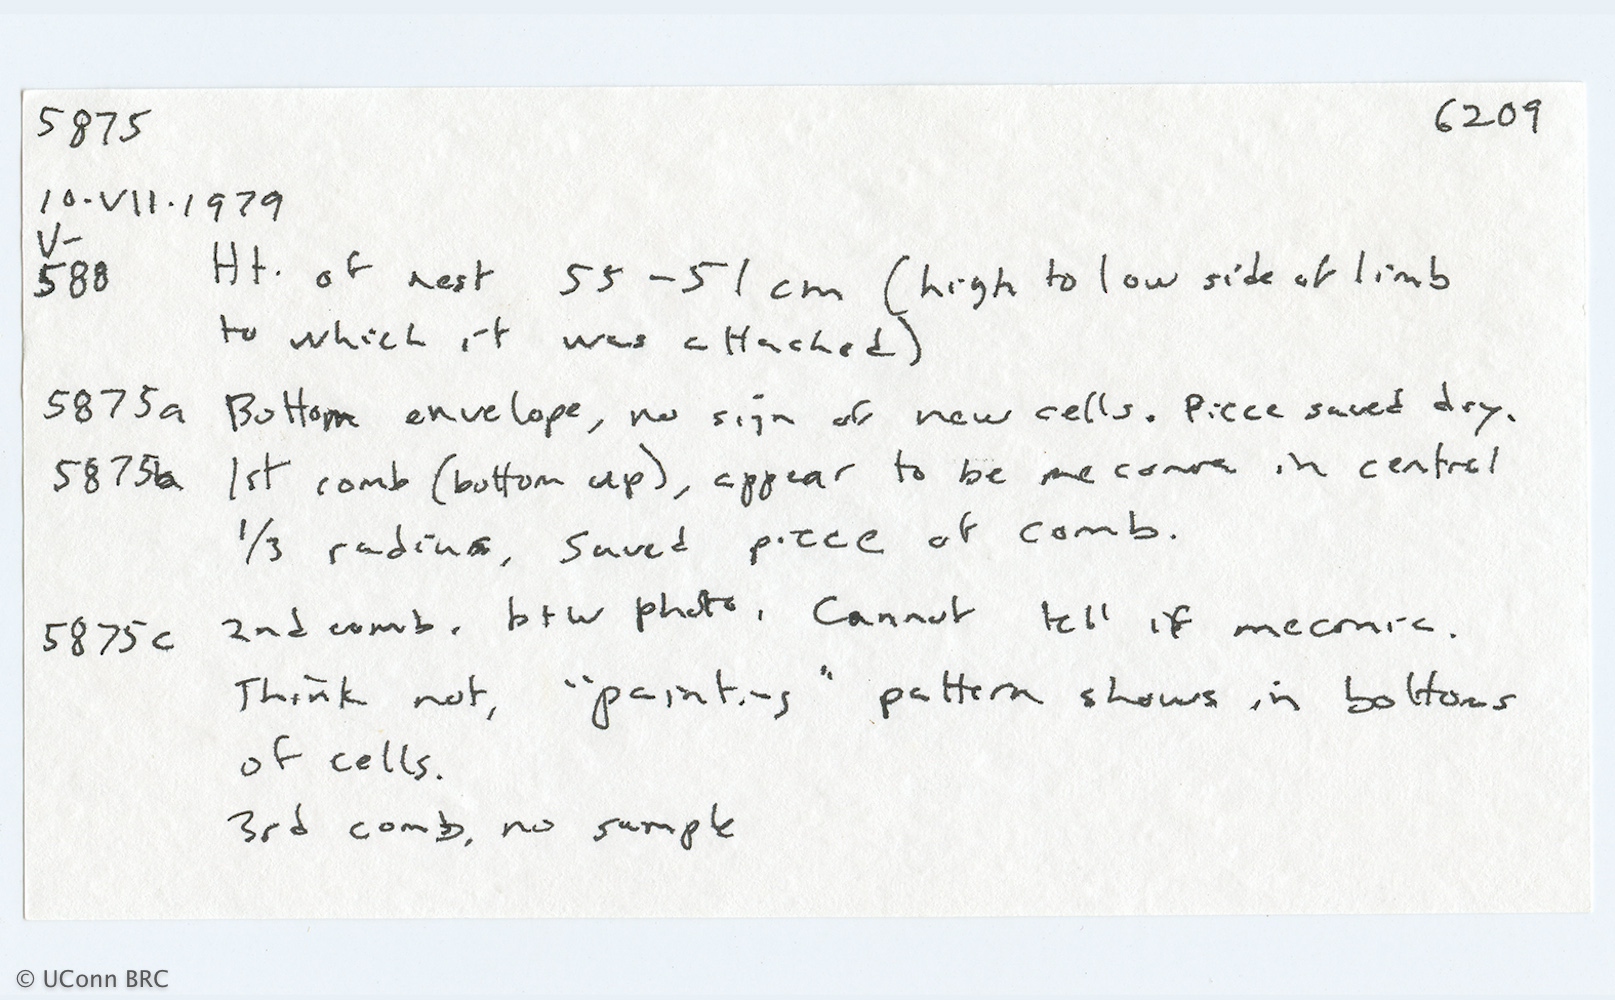 5875 6209
10.VII.1979
V-
588 Ht. of nest 55-51 cm (high to low side of limb
to which it was attached)
5875a Bottom envelope, no sign of new cells. Piece saved dry.
5875b 1st comb (bottom up), appear to be meconia in central
1/3 radius, Saved piece of comb.
5875c 2nd comb. b+w photo. Cannot tell if meconia.
Think not, "painting" pattern shows in bottoms
of cells.
3rd comb, no sample
© UConn BRC